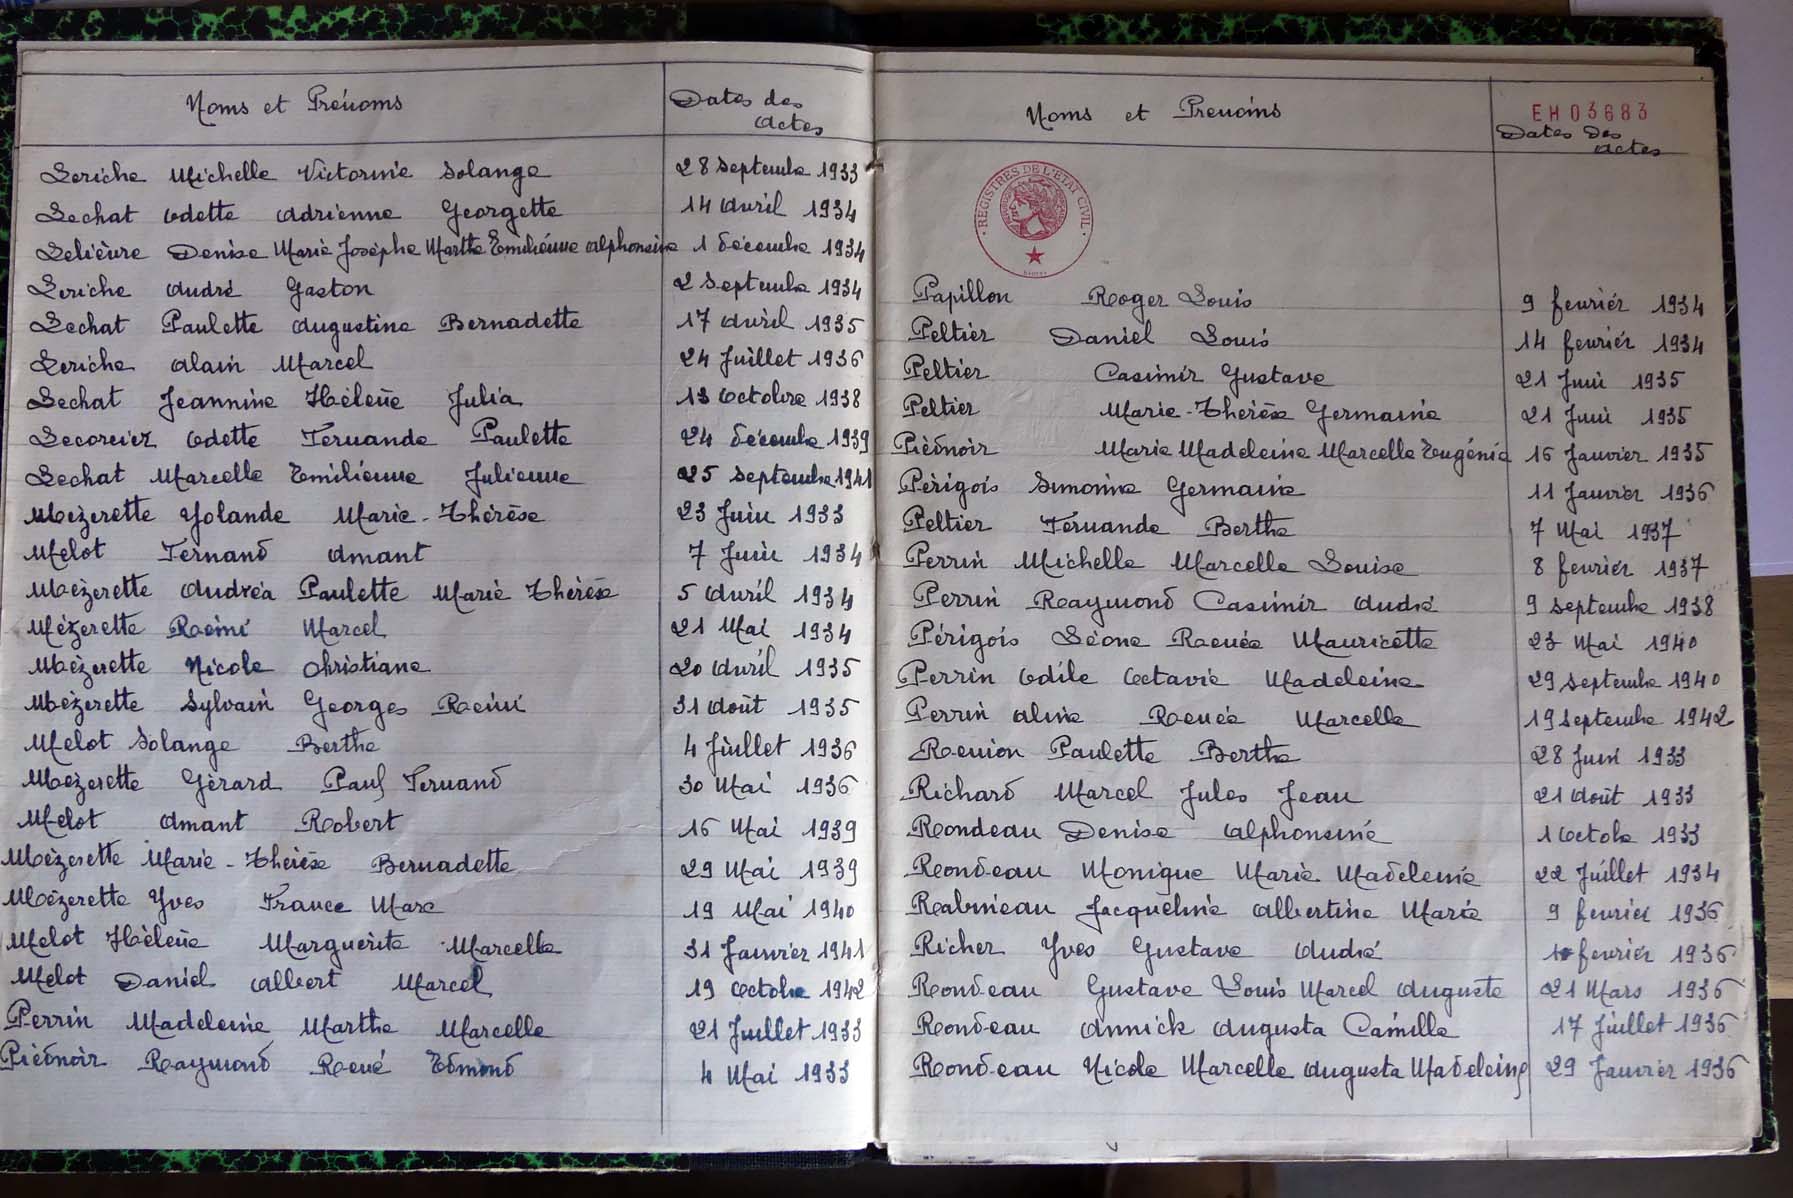 Noms et Prénoms Dates des actes
Leriche Michelle Victorine Solange 28 Septembre 1933
Lechat Odette Adrienne Georgette 14 Avril 1934
Lelièvre Denise Marie Josèphe Marthe Emilienne Alphonsine 1 Décembre 1934
Leriche André Gaston 2 Septembre 1934
Lechat Paulette Augustine Bernadette 17 Avril 1935
Leriche Alain Marcel 24 Juillet 1936
Lechat Jeannine Hélène Julia 13 Octobre 1938
Lecorciez Odette Fernande Paulette 24 Décembre 1939
Lechat Marcelle Emilienne Julienne 25 Septembre 1941
Mézerette Yolande Marie-Thérèse 23 Juin 1933
Melot Fernand Amant 7 Juin 1934
Mézerette Andréa Paulette Marie Thérèse 5 Avril 1934
Mézerette Rémi Marcel 21 Mai 1934
Mézerette Nicole Christiane 20 Avril 1935
Mézerette Sylvain Georges Rémi 31 Août 1935
Melot Solange Berthe 4 Juillet 1936
Mézerette Gérard Paul Fernand 30 Mai 1936
Melot Amant Robert 16 Mai 1939
Mézerette Marie-Thérèse Bernadette 29 Mai 1939
Mézerette Yves France Marc 19 Mai 1940
Melot Hélène Marguerite Marcelle 31 Janvier 1941
Melot Daniel Albert Marcel 19 Octobre 1942
Perrin Madeleine Marthe Marcelle 21 Juillet 1933
Piédnoir Raymond René Edmond 4 Mai 1933
EH03683
Noms et Prénoms Dates des actes
REGISTRES DE L'ETAT CIVIL
Papillon Roger Louis 9 février 1934
Peltier Daniel Louis 14 février 1934
Peltier Casimir Gustave 21 Juin 1935
Peltier Marie-Thérèse Germaine 21 Juin 1935
Piédnoir Marie Madeleine Marcelle Eugénie 16 Janvier 1935
Périgois Simonne Germaine 11 Janvier 1936
Peltier Fernande Berthe 7 Mai 1937
Perrin Michelle Marcelle Louise 8 février 1937
Perrin Raymond Casimir André 9 Septembre 1938
Périgois Léone Renée Mauricette 23 Mai 1940
Perrin Odile Octavie Madeleine 29 Septembre 1940
Perrin Aline Renée Marcelle 19 Septembre 1942
Renion Paulette Berthe 28 Juin 1933
Richard Marcel Jules Jean 21 Août 1933
Rondeau Denise Alphonsine 1 Octobre 1933
Rondeau Monique Marie Madeleine 22 Juillet 1934
Rabineau Jacqueline Albertine Marie 9 février 1936
Richer Yves Gustave André février 1936
Rondeau Gustave Louis Marcel Auguste 21 Mars 1936
Rondeau Annick Augusta Camille 17 Juillet 1936
Rondeau Nicole Marcelle Augusta Madeleine 29 Janvier 1936